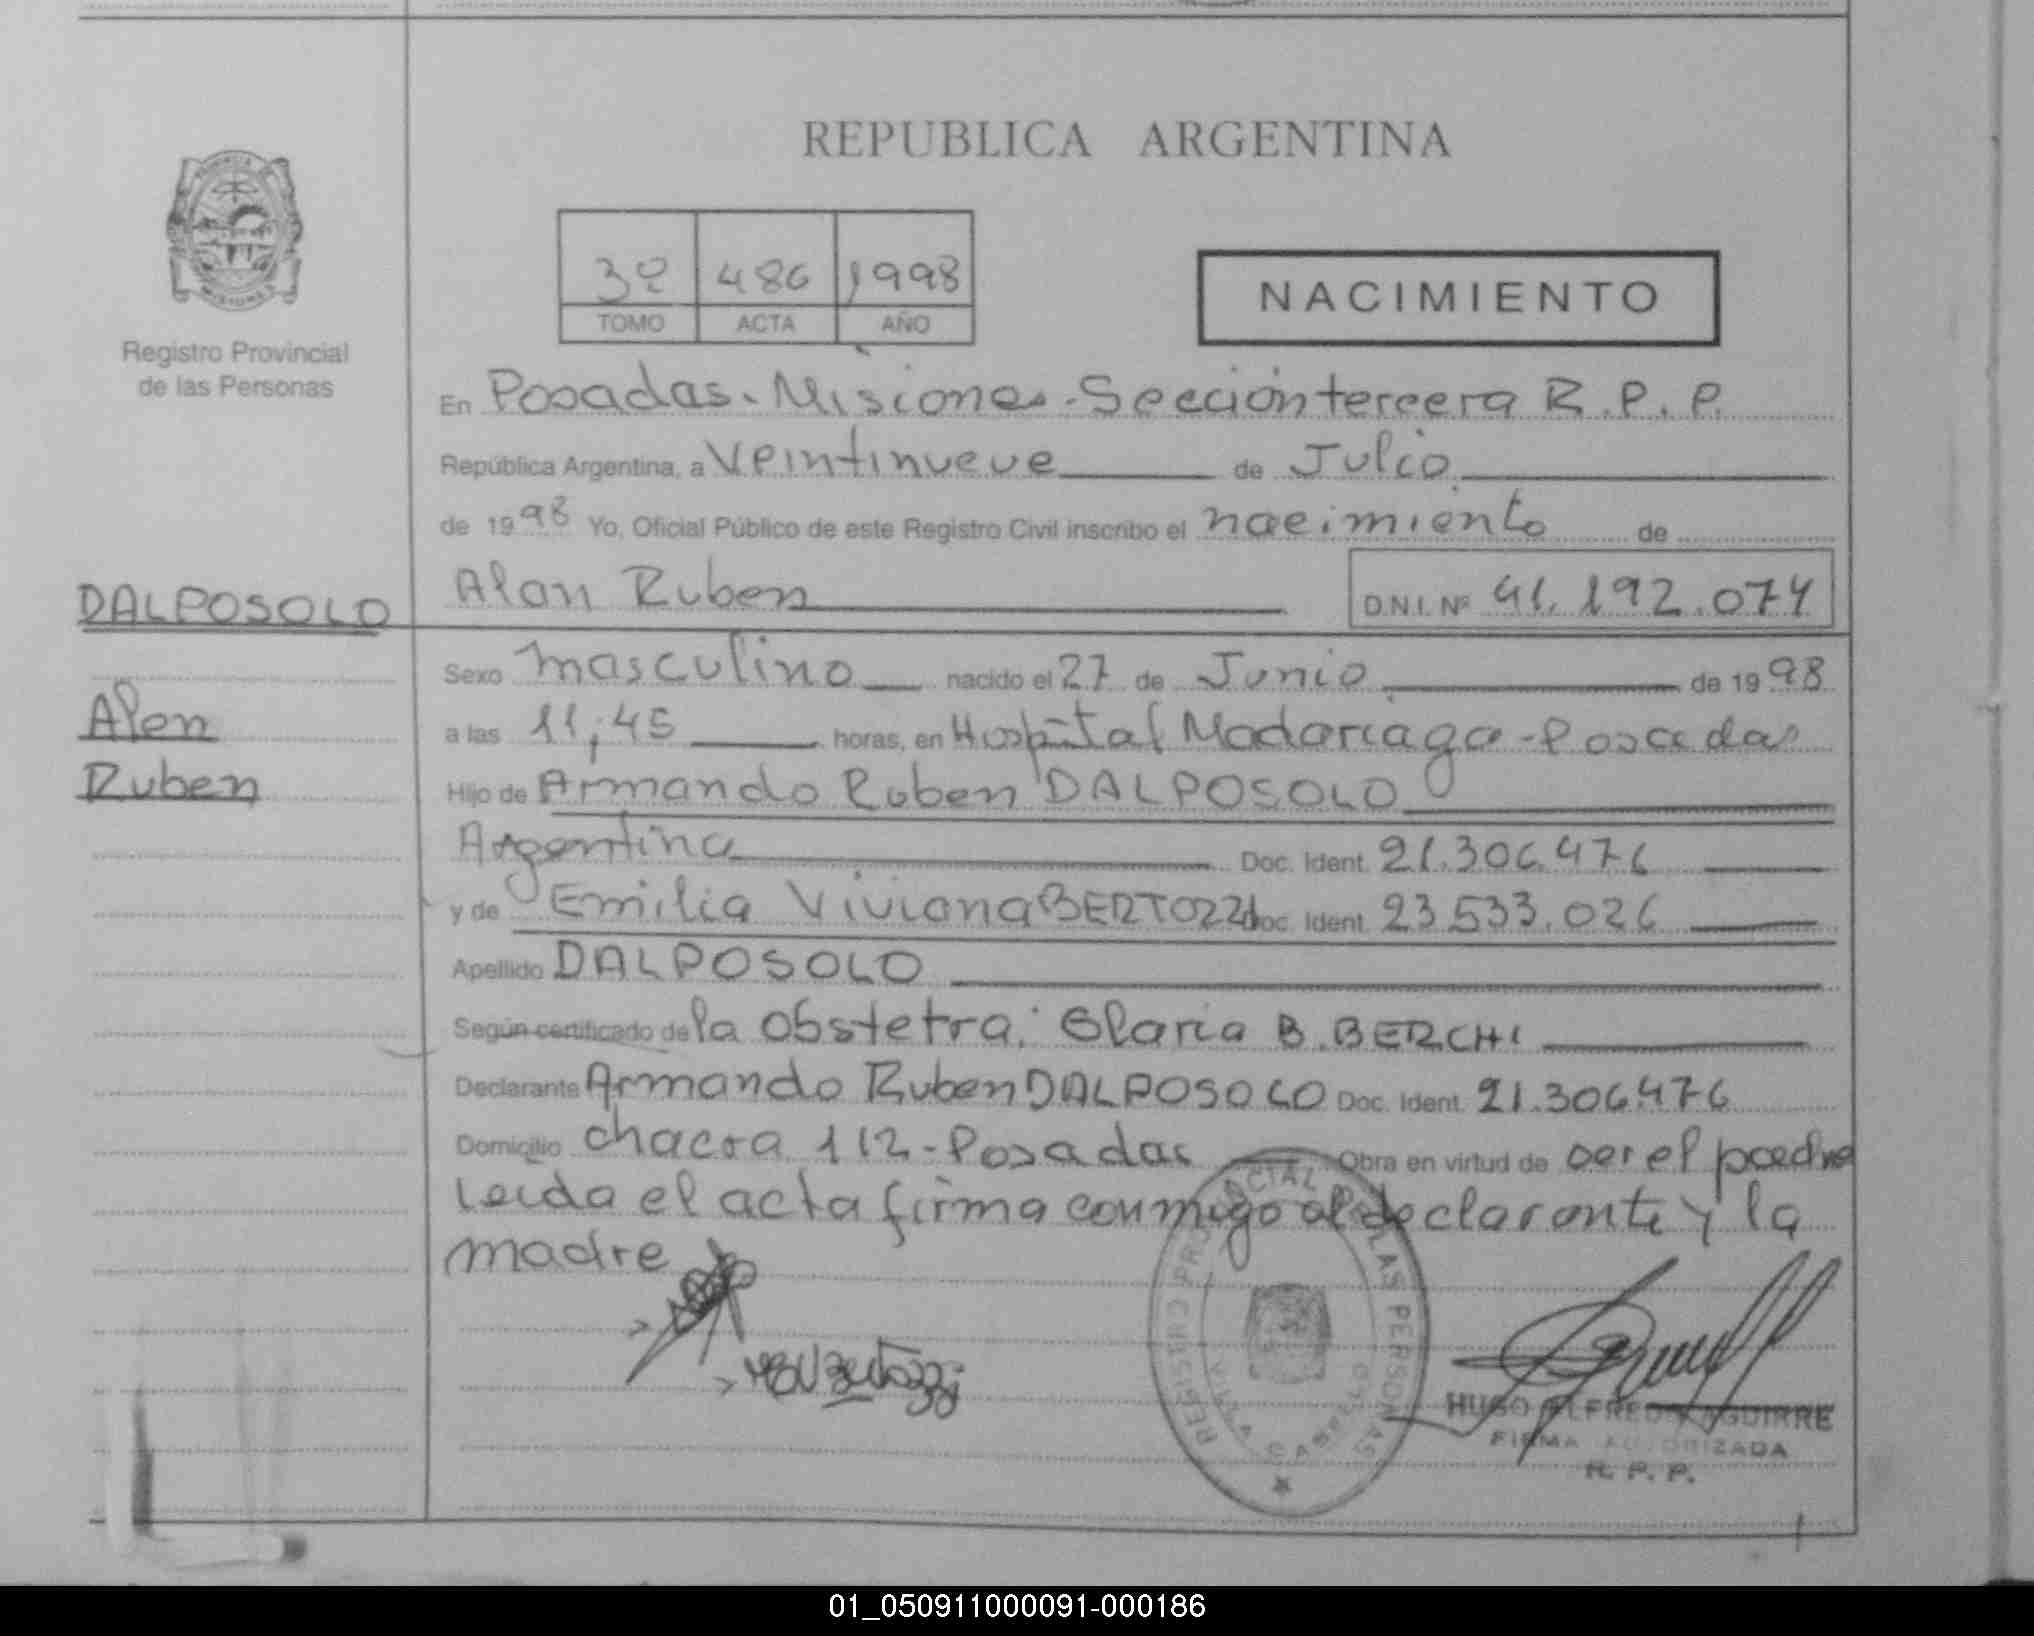 REPUBLICA ARGENTINA
3º 486 1998
TOMO ACTA AÑO
NACIMIENTO
Registro Provincial
de las Personas
En Posadas. Misiones. Sección tercera R.P.P.
República Argentina, a Veintinueve de Julio
de 1998 Yo, Oficial Público de este Registro Civil inscribo el nacimiento de
DALPOSOLO
Alan Ruben D.N.I. Nº 41.192.074
Alan
Ruben
Sexo masculino nacido el 27 de Junio de 1998
a las 11,45 horas, en Hospital Madariaga - Posadas
Hijo de Armando Ruben DALPOSOLO
Argentina Doc. Ident. 21.306.476
y de Emilia Viviana BERTOZZI Doc. Ident. 23.533.026
Apellido DALPOSOLO
Según certificado de la obstetra: Gloria B. BERCHI
Declarante Armando Ruben DALPOSOLO Doc. Ident. 21.306.476
Domicilio chacra 112 - Posadas Obra en virtud de ser el padre
leida el acta firma conmigo el declarante y la
madre
REGISTRO PROVINCIAL DE LAS PERSONAS
HUGO ALFREDO AGUIRRE
FIRMA AUTORIZADA
R. P. P.
01_050911000091-000186